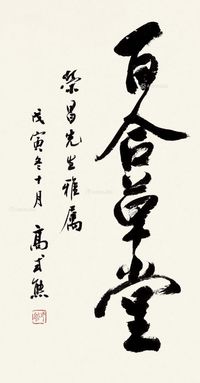 百合草堂
榮昌先生雅属
戊寅冬十月
高式熊